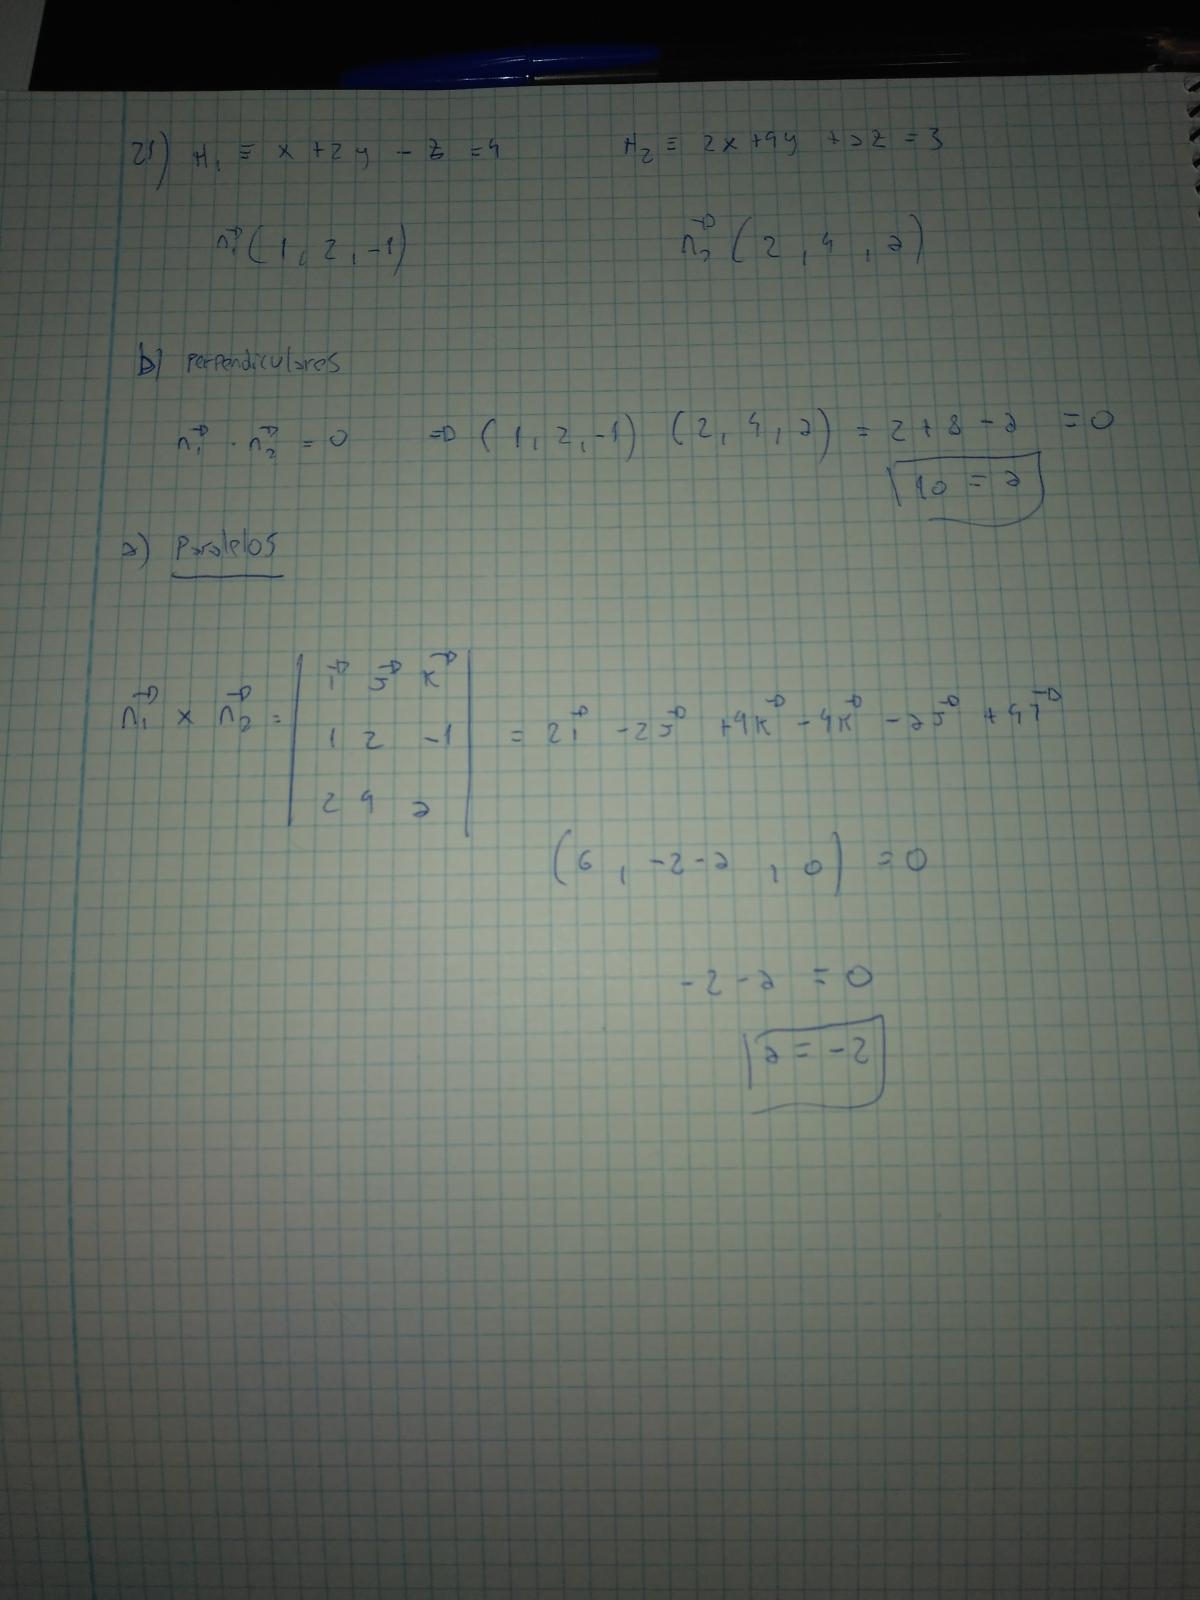 21) π₁ ≡ x + 2y - z = 4    π₂ ≡ 2x + 4y + az = 3
n₁→ (1, 2, -1)    n₂→ (2, 4, a)
b) perpendiculares
n₁→ · n₂→ = 0 ⇒ (1, 2, -1) (2, 4, a) = 2 + 8 - a = 0
10 = a
a) Paralelos
i→ j→ k→
n₁→ x n₂→ = | 1 2 -1 | = 2i→ - 2j→ + 4k→ - 4k→ - aj→ + 4i→
2 4 a
(6, -2-a, 0) = 0
-2 - a = 0
a = -2